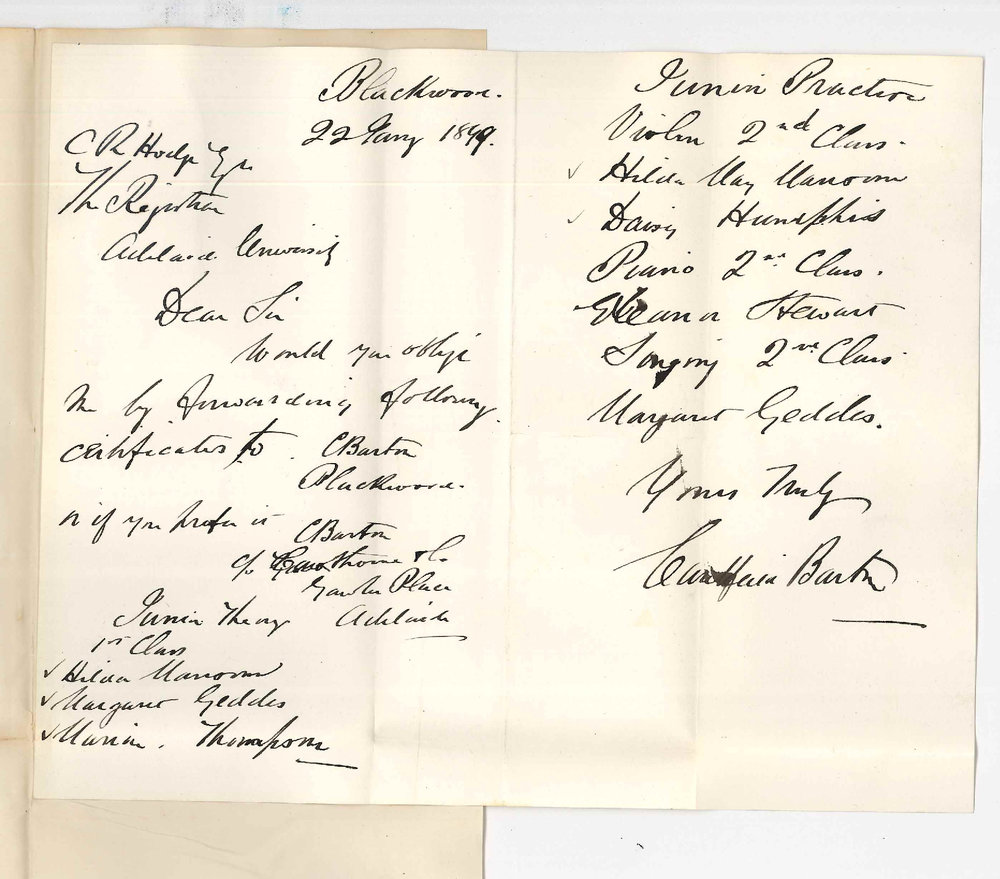 Blackwood.
22 Jany 1899.
C R Hodge Esqre
The Registrar
Adelaide University
Dear Sir
Would you oblige
me by forwarding following
certificates to C Barton
Blackwood.
or if you prefer it C Barton
c/o Cawthorne & Co
Gawler Place
Adelaide
Junior Theory
1st Class
✓ Hilda
✓ Margaret Geddes
✓ Marian. Thompson
Junior Practice
Violin 2nd Class.
✓ Hilda May
✓ Daisy Humphris
Piano 2nd Class.
Eleanor Stewart
Singing 2nd Class
Margaret Geddes.
Yours Truly
Barton